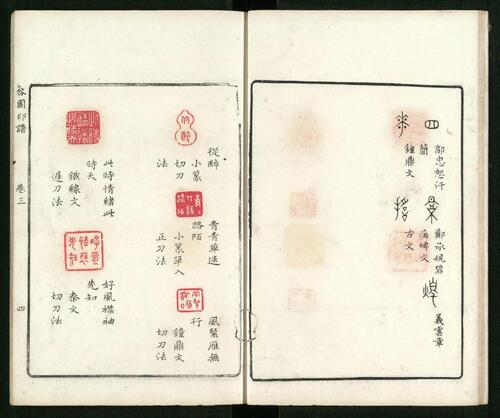 四
郭忠恕汗
簡
鐘鼎文
鄭承規碧
落碑文
古文
義雲章
從醉
小篆
切刀
法
青青草迷
路陌
小篆單入
正刀法
風緊雁無
行
鐘鼎文
切刀法
此時情緒此
時天
鐵線文
遲刀法
好風襟袖
先知
秦文
切刀法
谷園印譜 卷三 四